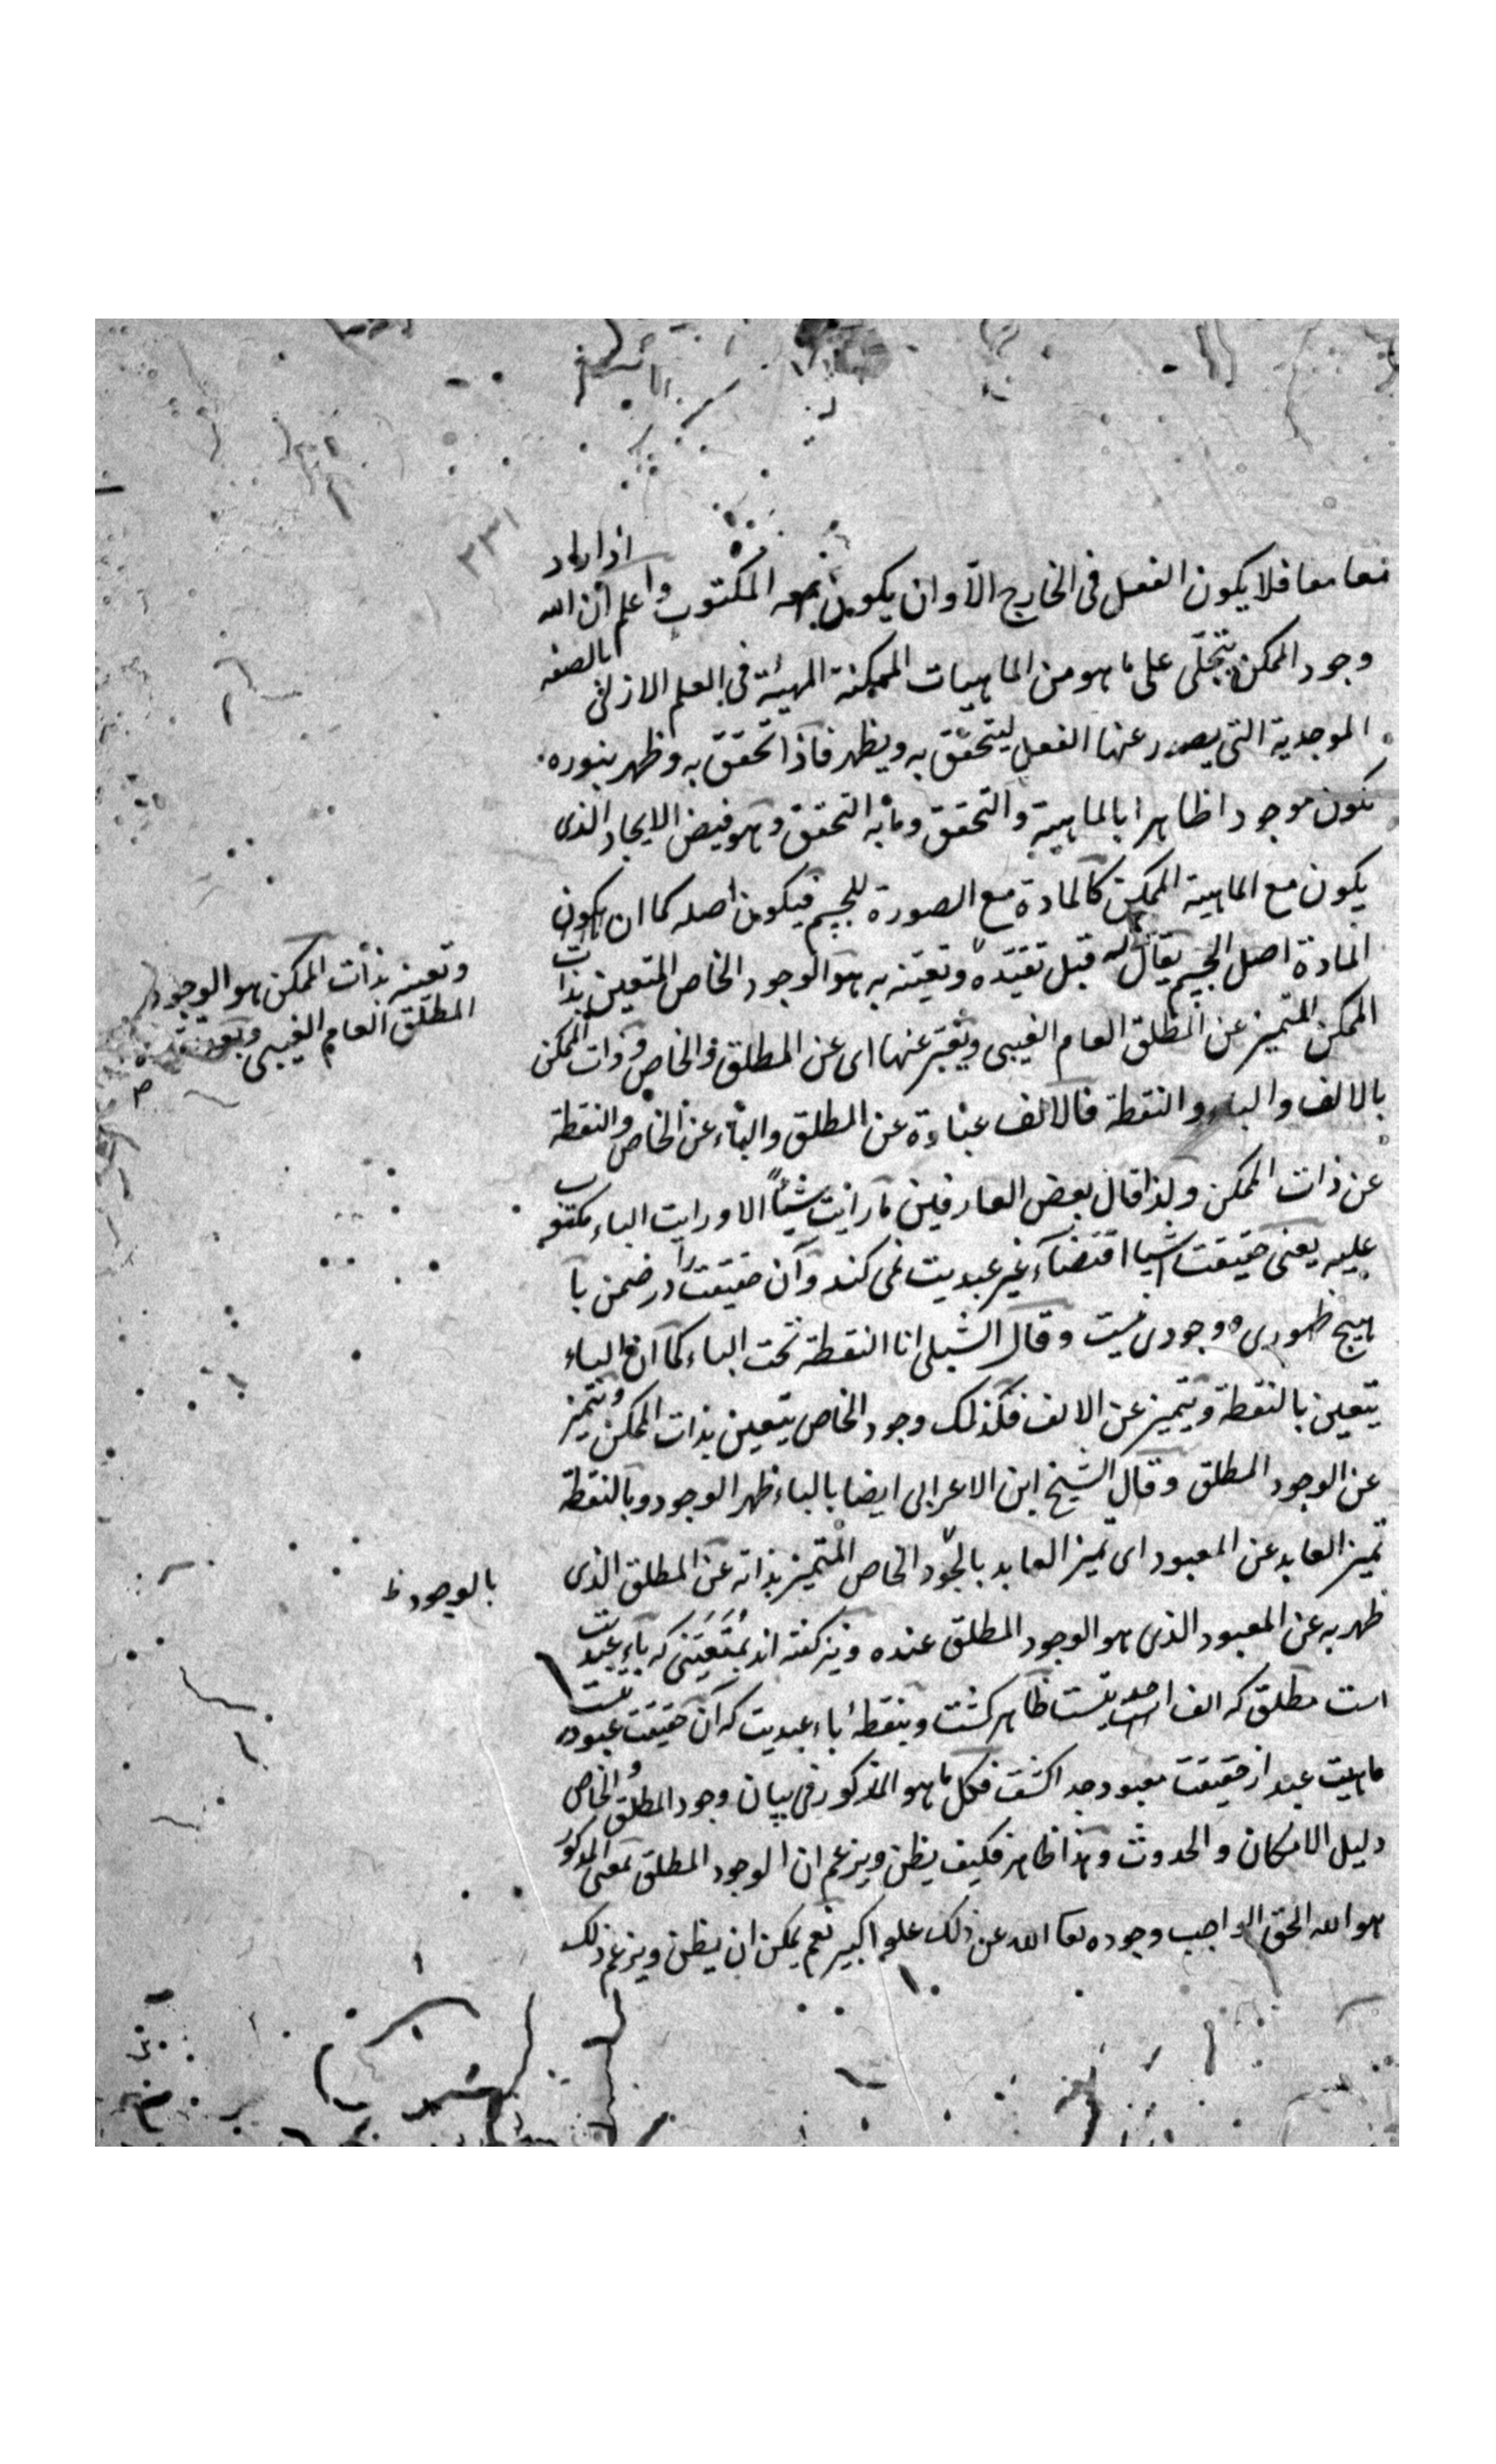 معا معا فلا يكون الفعل فى الخارج الّا وان يكون معه المكتوب واعلم ان الله اذا اراد
وجود الممكن يتجلّى على ما هو من الماهيات الممكنة المهيئة فى العلم الازلى بالصفة
الموجدية التى يصدر عنها الفعل ليتحقّق به ويظهر فاذا تحقق به وظهر بنوره
تكون موجودا ظاهرا بالماهية والتحقق وما به التحقق وهو فيض الايجاد الذى
يكون مع الماهية الممكن كالمادة مع الصورة للجسم فيكون اصله كما ان يكون
المادة اصل الجسم يقال له قبل تقيّده وتعينه به هو الوجود الخاص المتعين بذات
الممكن المتميز عن المطلق العام الغيبى ويعبّر عنها اى عن المطلق والخاص وذات الممكن
بالالف والباء والنقطة فالالف عبارة عن المطلق والباء عن الخاص والنقطة
عن ذات الممكن ولذا قال بعض العارفين ما رايت شيئاً الا ورايت الباء مكتوب
عليه يعنى حقيقت اشيا اقتضآء غير عبديت نمى كند وآن حقيقت را در ضمن با
هيچ ظهورى ووجودى نيست وقال الشبلى انا النقطة تحت الباء كما ان الباء
يتعين بالنقطة ويتميز عن الالف فكذلك وجود الخاص يتعين بذات الممكن ويتميز
عن الوجود المطلق وقال الشيخ ابن الاعرابى ايضا بالباء ظهر الوجود وبالنقطة
تميز العابد عن المعبود اى تميز العابد بالجود الخاص المتميز بذاته عن المطلق الذى
ظهر به عن المعبود الذى هو الوجود المطلق عنده ونيز گفته اند كه بآء عبديت
است مطلق كه الف احديتست ظاهر گشت وبنقطهٔ باء عبديت كه آن حقيقت عبوديتست
ماهيت عبد از حقيقت معبود جدا گشت فكل ما هو المذكور فى بيان وجود المطلق والخاص
دليل الامكان والحدوث وهذا ظاهر فكيف يظن ويزعم ان الوجود المطلق بمعنى المذكور
هو الله الحق الواجب وجوده تعا الله عن ذلك علوا كبير نعم يمكن ان يظن ويزعم ذلك
وتعينه بذات الممكن هو الوجود
المطلق العام الغيبى وبعد
بالوجود ظ
٣٣١